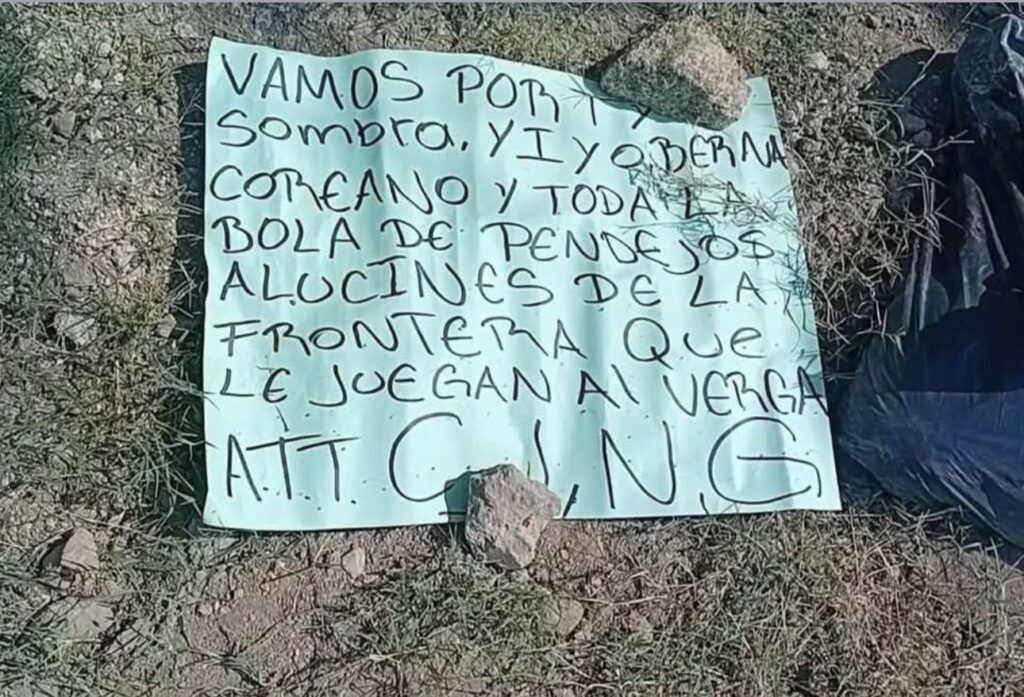 VAMOS POR
Sombra. Y I Y O, BERNA
COREANO Y TODA LA
BOLA DE PENDEJOS
ALUCINES DE LA
FRONTERA QUe
LE JUEGAN Al VERGA
ATT. C.J.N.G